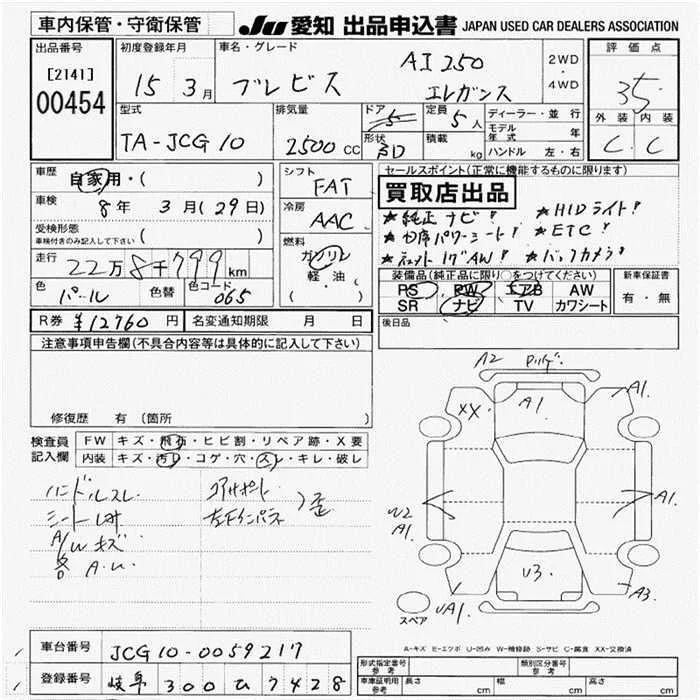 車内保管・守衛保管
JU 愛知 出品申込書 JAPAN USED CAR DEALERS ASSOCIATION
出品番号
[2141]
00454
初度登録年月
15 3月
車名・グレード
ブレビス
AI250
エレガンス
2WD
・
4WD
評価点
3.5
外装 内装
C C
型式
TA-JCG10
排気量
2500 CC
ドア
5
形状
SD
定員
5人
積載
kg
ディーラー・並行
モデル年式 年
ハンドル 左・右
車歴
自家用・( )
車検
8年 3月(29日)
受検形態
車検付きのみ記入して下さい ( )
走行
22万8千799km
色
パール
色替
色コード
065
シフト
FAT
冷房
AAC
燃料
ガソリン
軽・油
( )
セールスポイント(正常に機能するものに限ります)
買取店出品
★純正ナビ! ★HIDライト!
★ パワーシート! ★ETC!
★ AW! ★バックカメラ!
装備品(純正品に限り○をつけてください)
PS PW エアB AW
SR ナビ TV カワシート
新車保証書
有・無
R券 ¥12760円
名変通知期限 月 日
後日品
注意事項申告欄(不具合内容等は具体的に記入して下さい)
修復歴 有(箇所
検査員記入欄
FW キズ・飛石・ヒビ割・リペア跡・X要
内装 キズ・汚レ・コゲ・穴・スレ・キレ・破レ
ハンドルスレ
シート
A/Wキズ
各A.U.
コアサポート
左右インパネ
歪
A2
XX
A1
A1.
W2
A1.
A1.
U3.
UA1.
A3.
スペア
A-キズ E-エクボ U-凹み W-補修跡 S-サビ C-腐食 XX-交換済
車台番号
JCG10-0059217
登録番号
岐阜 300 ひ 7428
形式指定番号
参考
類別区分番号
参考
車庫証明用
参考
長さ cm
幅 cm
高さ cm